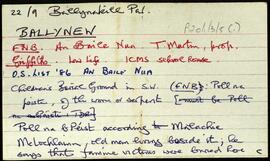 22/9 Ballynakill Par.
P120/3/5 ( )
BALLYNEW
F.N.B. An Baile Nua T. Martin, prop.
Griffiths Law Life ICMS school Renvle
O.S. LIST '86 AN BAILE NUA
Children's Burial Ground in S.W. (F.N.B): Poll na
péiste, of the worm or serpent [must be Poll
na
Poll na bPéist according to Malachie
McLochlainn, old man living beside it; he
says that famine victims were buried here